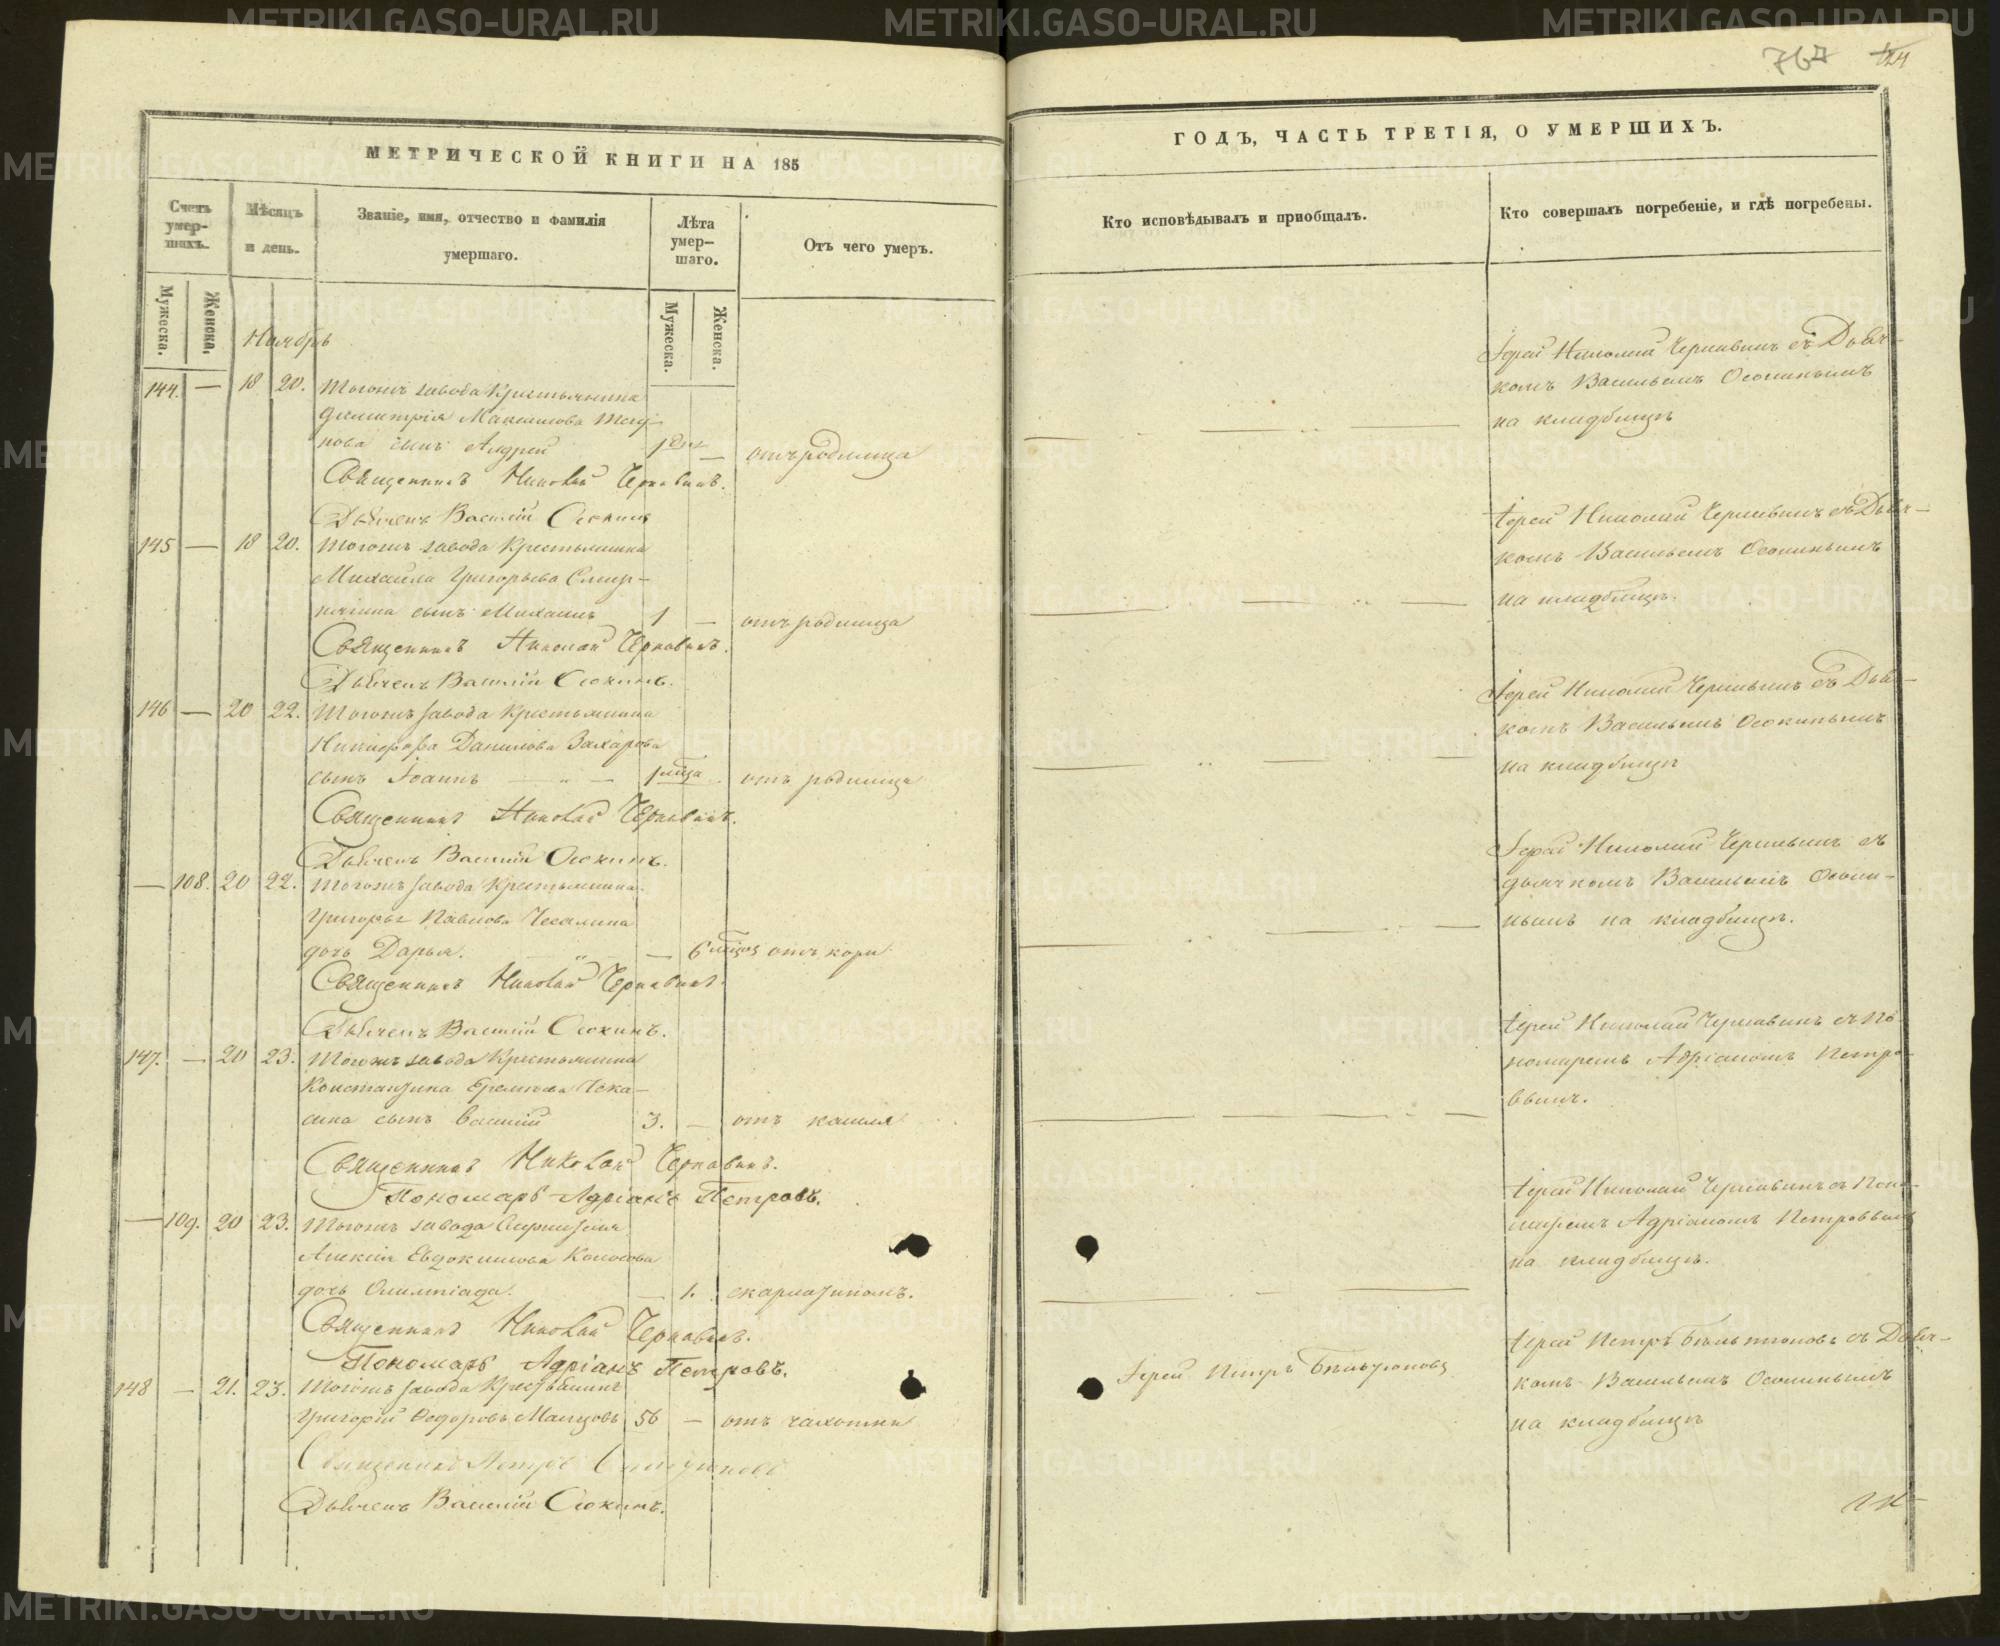 METRIKI.GASO-URAL.RU
767 124
МЕТРИЧЕСКОЙ КНИГИ НА 185
Счетъ умер-шихъ.
Мѣсяцъ и день.
Званіе, имя, отчество и фамилія умершаго.
Лѣта умер-шаго.
Отъ чего умеръ.
Мужеска.
Женска.
Мужеска.
Женска.
Ноябрь
144. — 18 20. Тогожъ завода Крестьянина
Димитрія Максимова
сынъ Андрей — отъ родимца
Священникъ Николай Чернавинъ.
Дьячекъ Василій Осокинъ
145 — 18 20. Тогожъ завода Крестьянина
Михаила Григорьева
сынъ Михаилъ 1 — отъ родимца
Священникъ Николай Чернавинъ.
Дьячекъ Василій Осокинъ.
146 — 20 22. Тогожъ завода Крестьянина
Никифора Данилова Захарова
сынъ Іоаннъ — „ — 1 мѣца отъ родимца
Священникъ Николай Чернавинъ.
Дьячекъ Василій Осокинъ.
— 108. 20 22. Тогожъ завода Крестьянина
Григорья Павлова
дочь Дарья. — „ — — 6 отъ кори
Священникъ Николай Чернавинъ.
Дьячекъ Василій Осокинъ.
147. — 20 23. Тогожъ завода Крестьянина
Константина
сынъ Василій 3. — отъ кашля
Священникъ Николай Чернавинъ.
Пономарь Адріанъ Петровъ.
— 109. 20 23. Тогожъ завода
Алексія Евдокимова Колосова
дочь Олимпіада. — 1. скарлатиномъ.
Священникъ Николай Чернавинъ.
Пономарь Адріанъ Петровъ.
148 — 21. 23. Тогожъ завода Крестьянинъ
Григорій Федоровъ 56 — отъ чахотки
Священникъ Петръ
Дьячекъ Василій Осокинъ.
ГОДЪ, ЧАСТЬ ТРЕТІЯ, О УМЕРШИХЪ.
Кто исповѣдывалъ и пріобщалъ.
Кто совершалъ погребеніе, и гдѣ погребены.
Іерей Николай Чернавинъ съ Дьяч-
комъ Васильемъ Осокинымъ
на кладбищѣ
Іерей Николай Чернавинъ съ Дьяч-
комъ Васильемъ Осокинымъ
на кладбищѣ.
Іерей Николай Чернавинъ съ Дьяч-
комъ Васильемъ Осокинымъ
на кладбищѣ
Іерей Николай Чернавинъ съ
дьячкомъ Васильемъ Осоки-
нымъ на кладбищѣ.
Іерей Николай Чернавинъ съ По-
номаремъ Адріаномъ Петро-
вымъ.
Іерей Николай Чернавинъ съ Поно-
маремъ Адріаномъ Петровымъ
на кладбищѣ.
Іерей Петръ
Іерей Петръ съ Дьяч-
комъ Васильемъ Осокинымъ
на кладбищѣ